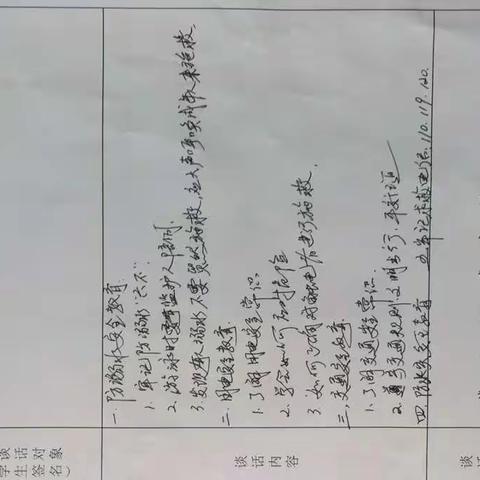 谈话对象
学生签名）
谈话内容
一、防溺水安全教育.
1. 牢记防溺水"六不"
2. 游泳时要有监护人陪同.
3. 发现有人溺水不要贸然施救,应大声呼唤成人来施救.
二、用电安全教育.
1. 了解用电安全常识.
2. 学会如何应对
3. 如何正确对触电者进行施救.
三、交通安全教育.
1. 了解交通安全常识.
2. 遵守交通规则,文明出行,平安
四、防火安全教育 牢记求救电话:110.119.120.
谈话